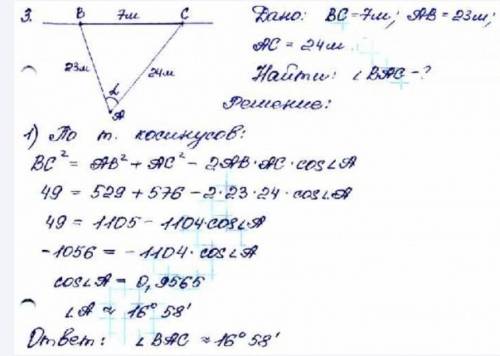 3. B 7м C Дано: BC=7м; AB=23м;
AC = 24м
23м 24м Найти: ∠BAC-?
α
A Решение:
1) По т. косинусов:
BC² = AB² + AC² - 2AB·AC·cos∠A
49 = 529 + 576 - 2·23·24·cos∠A
49 = 1105 - 1104·cos∠A
-1056 = -1104·cos∠A
cos∠A = 0,9565
∠A ≈ 16° 58'
Ответ: ∠BAC ≈ 16° 58'